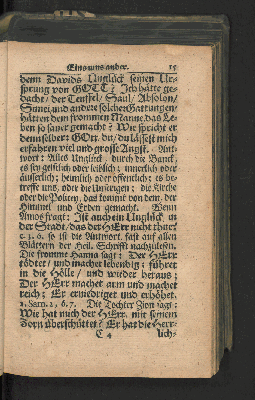 Eins ums ander. 15
denn Davids Unglück seinen Ur-
sprung von GOTT? Ich hätte ge-
dacht/ der Teuffel/ Saul/ Absolon/
Simei und andere solcher Gattungen
hätten dem frommen Manne das Le-
ben so sauer gemacht? Wie spricht er
denn selber: GOtt du/ du lässest mich
erfahren viel und grosse Angst. Ant-
wort: Alles Unglück/ durch die Banck,
es sey geistlich oder leiblich; innerlich oder
äuserlich; heimlich oder öffentlich; es be-
treffe uns, oder die Unserigen; die Kirche
oder die Policey, das kommt von dem, der
Himmel und Erden gemacht. Wenn
Amos fragt: Ist auch ein Unglück in
der Stadt/ das der HErr nicht thue?
c. 3. 6. so ist die Antwort, fast auf allen
Blättern der Heil. Schrifft nachzulesen.
Die fromme Hanna sagt: Der HErr
tödtet/ und machet lebendig; führet
in die Hölle/ und wieder heraus;
Der HErr machet arm und machet
reich; Er erniedriget und erhöhet.
1. Sam. 2, 6. 7. Die Tochter Zion sagt:
Wie hat mich der HErr mit seinem
Zorn überschüttet? Er hat die Herr-
C 4 lich-